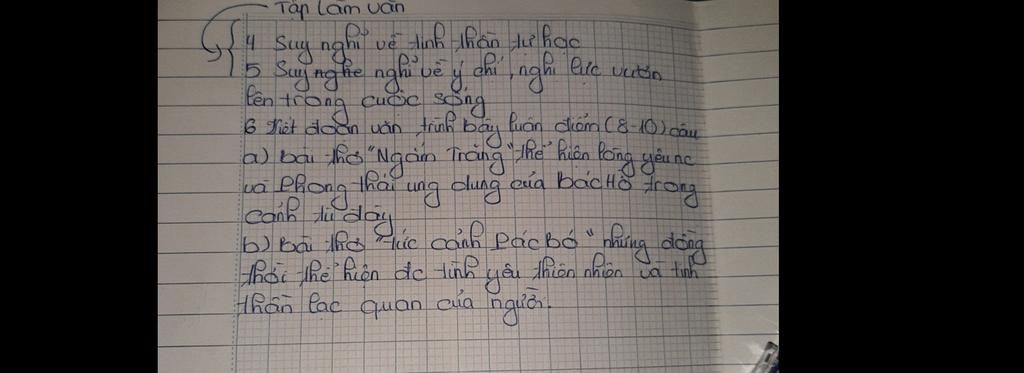 Tập làm văn
4 Suy nghĩ về tinh thần tự học
5 Suy nghe nghĩ về ý chí, nghị lực vươn
lên trong cuộc sống
6 Viết đoạn văn trình bày luận điểm (8-10) câu
a) bài thơ "Ngắm Trăng" thể hiện lòng yêu nc
và phong thái ung dung của bác Hồ trong
cảnh tù đày
b) bài thơ "tức cảnh Pác Bó" nhưng đồng
thời thể hiện đc tình yêu thiên nhiên và tinh
thần lạc quan của người.